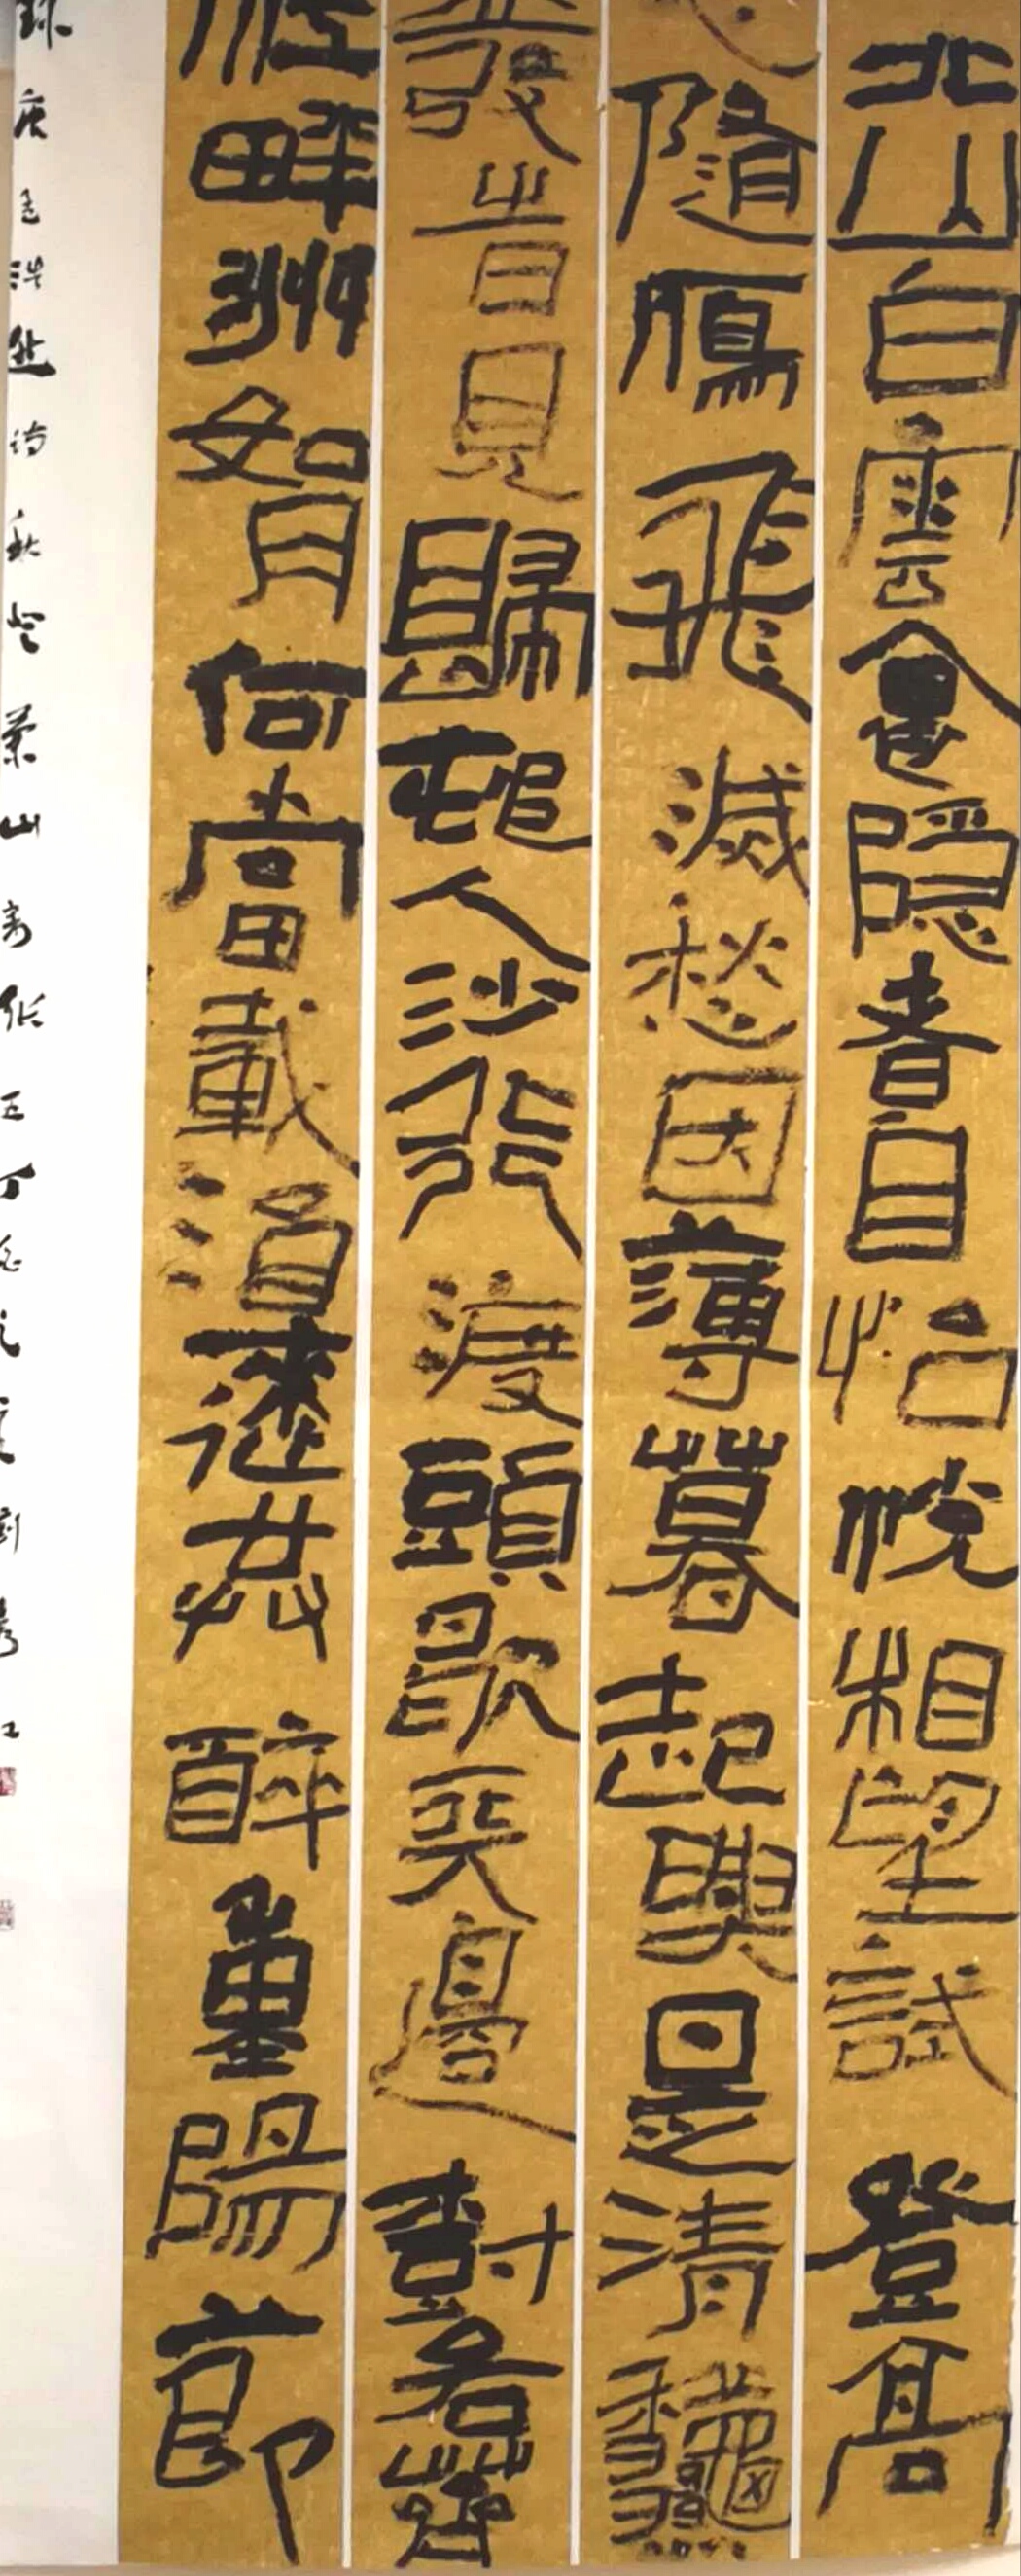 北山白雲裏隱者自怡悅相望試登高
心隨鴈飛滅愁因薄暮起興是清龝
發旹見歸邨人沙行渡頭歇天邊對若薺
江畔洲如月何當載酒逨共醉重陽節
錄唐孟浩然詩秋登蘭山寄張五丁劉秀江